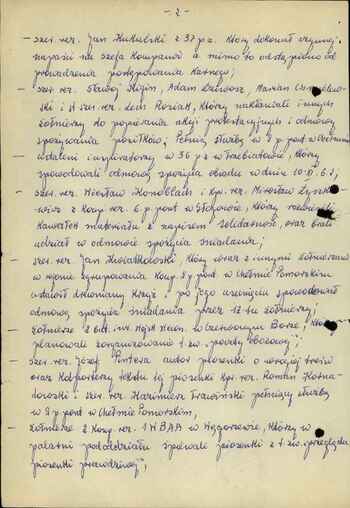 - 2 -
– szer. rez. Jan Kukulski z 37 p.z. który dokonał czynnej
napaści na szefa kompanii a mimo to odstąpiono od
prowadzenia postępowania karnego;
– szer. rez. Adam Marian
ski i st. szer. rez. Lech Poziak, którzy nakłaniali innych
żołnierzy do popierania akcji protestacyjnych i odmowy
spożywania posiłków. Pełnią służbę w 8 p. pont. w Chełmnie
– ustaleni inspiratorzy w 36 p.z w Trzebiatowie, którzy
spowodowali odmowę spożycia obiadu w dniu 10.
– szer. rez. Wiesław i kpr. rez. Mirosław
wicz z Komp. rez. 6 p. pont. w Głogowie, którzy
kawałek materiału z napisem Solidarność, oraz brali
udział w odmowie spożycia śniadania;
– szer. rez. Jan który wraz z innymi żołnierzami
w rejonie zgrupowania Komp. 8 p. pont w Chełmie Pomorskim
ustawił drewniany krzyż i po jego usunięciu spowodował
odmowę spożycia śniadania przez 12-tu żołnierzy;
– żołnierze 2 bat. w Czerwonym Borze, którzy
planowali zorganizowanie t.zw. "powtórki obozowej";
– szer. rez. Józef autor piosenki o wrogiej treści
oraz kolporterzy tekstu tej piosenki kpr. rez. Roman
dorowski i szer. rez. Kazimierz pełniący służbę
w 8 p. pont w Chełmie Pomorskim,
– żołnierze z Komp. rez. 1 WBAA w Węgorzewie, którzy w
palarni pododdziału śpiewali piosenki z t. zw. "przeglądu
piosenki prawdziwej",